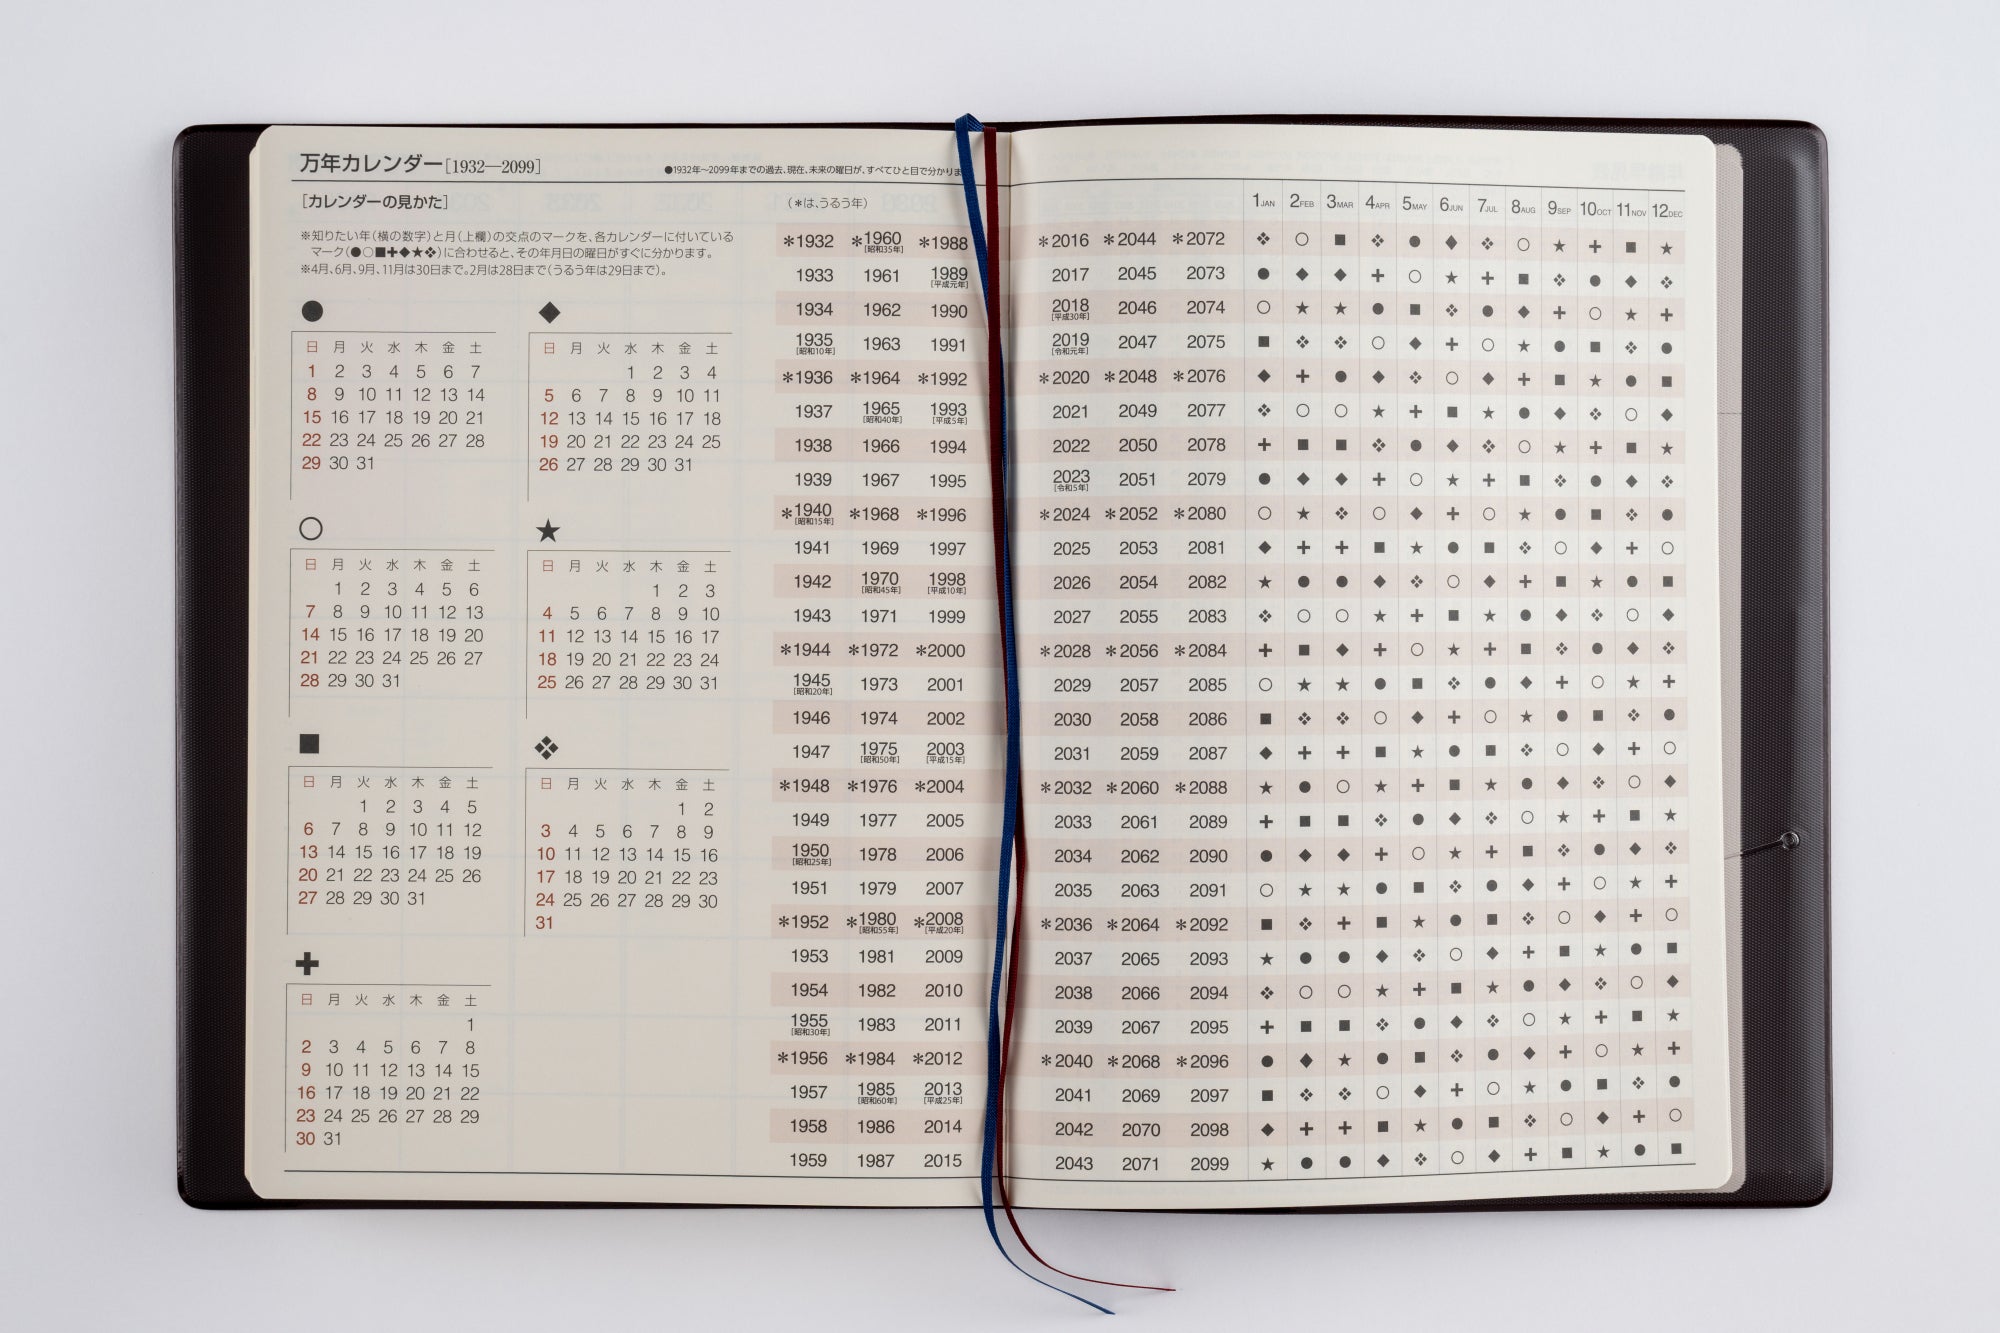 万年カレンダー[1932—2099]
●1932年〜2099年までの過去、現在、未来の曜日が、すべてひと目で分かりま
[カレンダーの見かた]
※知りたい年(横の数字)と月(上欄)の交点のマークを、各カレンダーに付いている
マーク(●○■✚◆★❖)に合わせると、その年月日の曜日がすぐに分かります。
※4月、6月、9月、11月は30日まで。2月は28日まで(うるう年は29日まで)。
●
日 月 火 水 木 金 土
1 2 3 4 5 6 7
8 9 10 11 12 13 14
15 16 17 18 19 20 21
22 23 24 25 26 27 28
29 30 31
○
日 月 火 水 木 金 土
1 2 3 4 5 6
7 8 9 10 11 12 13
14 15 16 17 18 19 20
21 22 23 24 25 26 27
28 29 30 31
■
日 月 火 水 木 金 土
1 2 3 4 5
6 7 8 9 10 11 12
13 14 15 16 17 18 19
20 21 22 23 24 25 26
27 28 29 30 31
✚
日 月 火 水 木 金 土
1
2 3 4 5 6 7 8
9 10 11 12 13 14 15
16 17 18 19 20 21 22
23 24 25 26 27 28 29
30 31
◆
日 月 火 水 木 金 土
1 2 3 4
5 6 7 8 9 10 11
12 13 14 15 16 17 18
19 20 21 22 23 24 25
26 27 28 29 30 31
★
日 月 火 水 木 金 土
1 2 3
4 5 6 7 8 9 10
11 12 13 14 15 16 17
18 19 20 21 22 23 24
25 26 27 28 29 30 31
❖
日 月 火 水 木 金 土
1 2
3 4 5 6 7 8 9
10 11 12 13 14 15 16
17 18 19 20 21 22 23
24 25 26 27 28 29 30
31
(*は、うるう年)
1JAN 2FEB 3MAR 4APR 5MAY 6JUN 7JUL 8AUG 9SEP 10OCT 11NOV 12DEC
*1932 *1960[昭和35年] *1988 *2016 *2044 *2072 ❖ ○ ■ ❖ ● ◆ ❖ ○ ★ ✚ ■ ★
1933 1961 1989[平成元年] 2017 2045 2073 ● ◆ ◆ ✚ ○ ★ ✚ ■ ❖ ● ◆ ❖
1934 1962 1990 2018[平成30年] 2046 2074 ○ ★ ★ ● ■ ❖ ● ◆ ✚ ○ ★ ✚
1935[昭和10年] 1963 1991 2019[令和元年] 2047 2075 ■ ❖ ❖ ○ ◆ ✚ ○ ★ ● ■ ❖ ●
*1936 *1964 *1992 *2020 *2048 *2076 ◆ ✚ ● ◆ ❖ ○ ◆ ✚ ■ ★ ● ■
1937 1965[昭和40年] 1993[平成5年] 2021 2049 2077 ❖ ○ ○ ★ ✚ ■ ★ ● ◆ ❖ ○ ◆
1938 1966 1994 2022 2050 2078 ✚ ■ ■ ❖ ● ◆ ❖ ○ ★ ✚ ■ ★
1939 1967 1995 2023[令和5年] 2051 2079 ● ◆ ◆ ✚ ○ ★ ✚ ■ ❖ ● ◆ ❖
*1940[昭和15年] *1968 *1996 *2024 *2052 *2080 ○ ★ ❖ ○ ◆ ✚ ○ ★ ● ■ ❖ ●
1941 1969 1997 2025 2053 2081 ◆ ✚ ✚ ■ ★ ● ■ ❖ ○ ◆ ✚ ○
1942 1970[昭和45年] 1998[平成10年] 2026 2054 2082 ★ ● ● ◆ ❖ ○ ◆ ✚ ■ ★ ● ■
1943 1971 1999 2027 2055 2083 ❖ ○ ○ ★ ✚ ■ ★ ● ◆ ❖ ○ ◆
*1944 *1972 *2000 *2028 *2056 *2084 ✚ ■ ◆ ✚ ○ ★ ✚ ■ ❖ ● ◆ ❖
1945[昭和20年] 1973 2001 2029 2057 2085 ○ ★ ★ ● ■ ❖ ● ◆ ✚ ○ ★ ✚
1946 1974 2002 2030 2058 2086 ■ ❖ ❖ ○ ◆ ✚ ○ ★ ● ■ ❖ ●
1947 1975[昭和50年] 2003[平成15年] 2031 2059 2087 ◆ ✚ ✚ ■ ★ ● ■ ❖ ○ ◆ ✚ ○
*1948 *1976 *2004 *2032 *2060 *2088 ★ ● ○ ★ ✚ ■ ★ ● ◆ ❖ ○ ◆
1949 1977 2005 2033 2061 2089 ✚ ■ ■ ❖ ● ◆ ❖ ○ ★ ✚ ■ ★
1950[昭和25年] 1978 2006 2034 2062 2090 ● ◆ ◆ ✚ ○ ★ ✚ ■ ❖ ● ◆ ❖
1951 1979 2007 2035 2063 2091 ○ ★ ★ ● ■ ❖ ● ◆ ✚ ○ ★ ✚
*1952 *1980[昭和55年] *2008[平成20年] *2036 *2064 *2092 ■ ❖ ✚ ■ ★ ● ■ ❖ ○ ◆ ✚ ○
1953 1981 2009 2037 2065 2093 ★ ● ● ◆ ❖ ○ ◆ ✚ ■ ★ ● ■
1954 1982 2010 2038 2066 2094 ❖ ○ ○ ★ ✚ ■ ★ ● ◆ ❖ ○ ◆
1955[昭和30年] 1983 2011 2039 2067 2095 ✚ ■ ■ ❖ ● ◆ ❖ ○ ★ ✚ ■ ★
*1956 *1984 *2012 *2040 *2068 *2096 ● ◆ ★ ● ■ ❖ ● ◆ ✚ ○ ★ ✚
1957 1985[昭和60年] 2013[平成25年] 2041 2069 2097 ■ ❖ ❖ ○ ◆ ✚ ○ ★ ● ■ ❖ ●
1958 1986 2014 2042 2070 2098 ◆ ✚ ✚ ■ ★ ● ■ ❖ ○ ◆ ✚ ○
1959 1987 2015 2043 2071 2099 ★ ● ● ◆ ❖ ○ ◆ ✚ ■ ★ ● ■